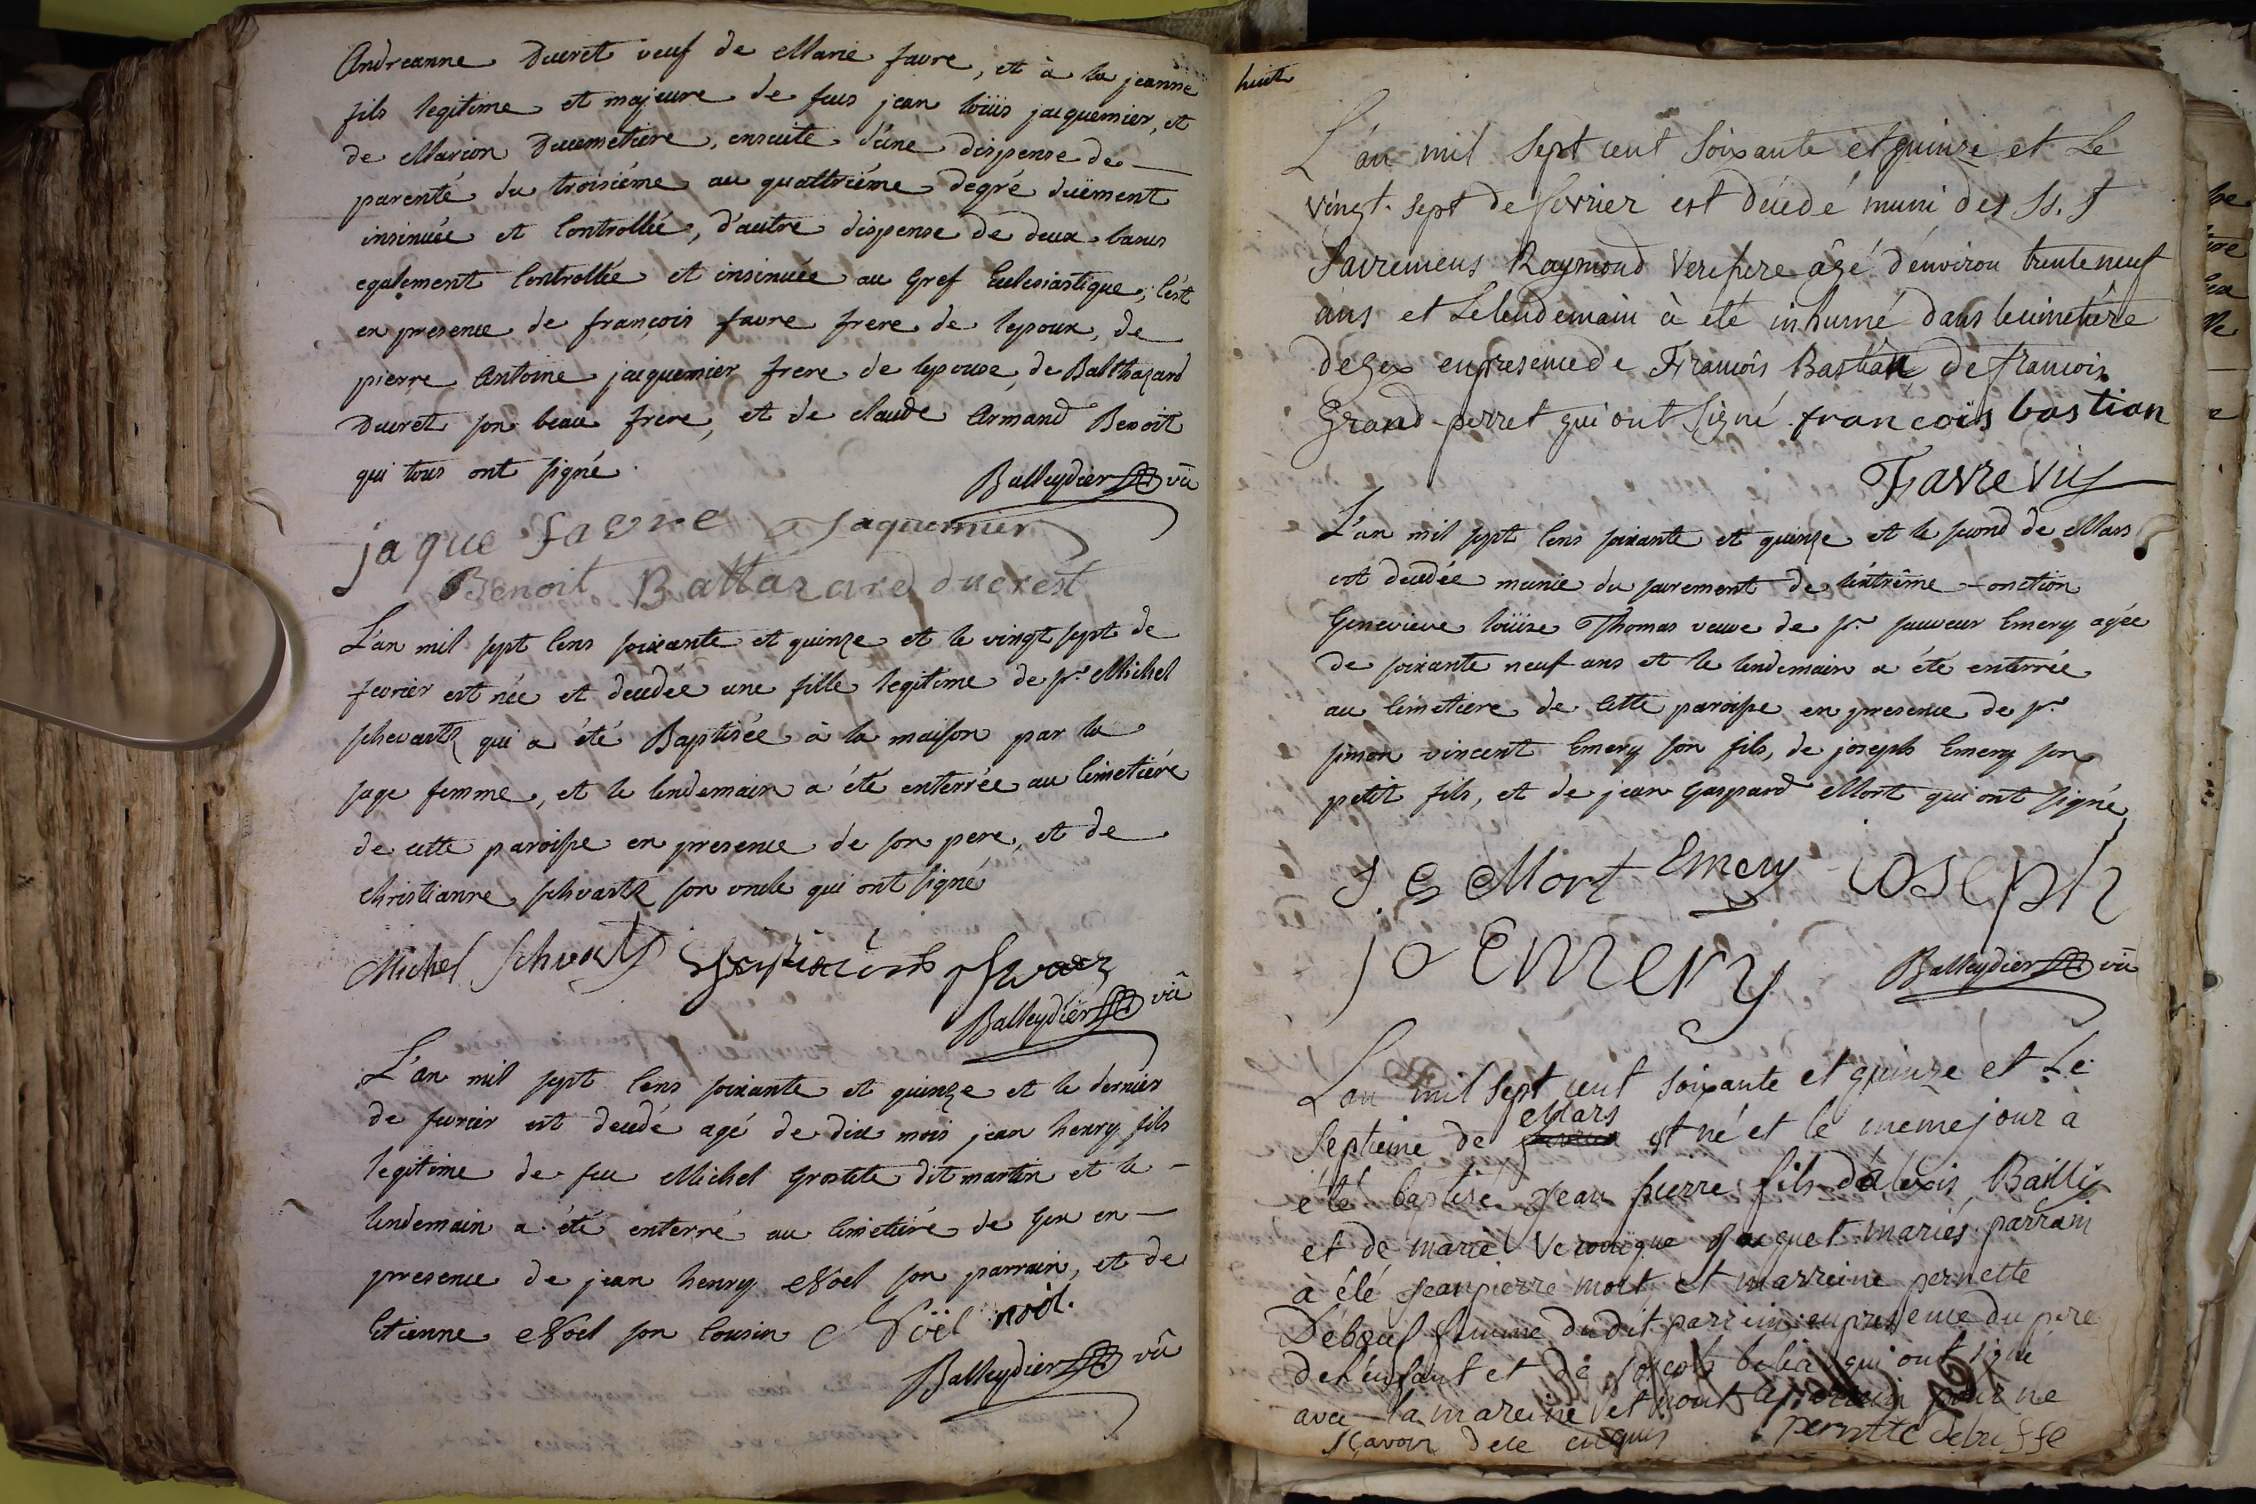 Andreanne Ducret veuf de Marie favre, et à la jeanne
fils legitime et majeure de feus jean loüis jacquemier, et
de Marion Ducemetiere, ensuite d'une dispense de
parenté du troisiéme au quattriéme degré düement
insinuée et Controllée, d'autre dispense de deux bancs
egalement Controllée et insinuée au Gref Eclesiastique; c'est
en presence de françois favre frere de lepoux, de
pierre Antoine jacquemier frere de lepouse, de Balthazard
Ducret son beau frere, et de claude Armand Benoit
qui tous ont signé
Balleydier vic
jaque favre Jaquemier
Benoit Baltazard ducrest
L'an mil sept Cens soixante et quinze et le vingt sept de
fevrier est née et decedée une fille legitime de sr. Michel
schevartz qui a été Baptisée à la maison par la
sage femme, et le lendemain a été enterrée au Cimetiére
de cette paroisse en presence de son pere, et de
christianne schvartz son oncle qui ont signé
Michel Schvartz
Balleydier vic
L'an mil sept Cens soixante et quinze et le dernier
de fevrier est decedé agé de dix mois jean henry fils
legitime de feu Michel Grostete dit martin et le
lendemain a été enterré au Cimetiére de Gex en
presence de jean henry Nöel son parrain, et de
Etienne Nöel son Cousin Nöel nöel.
Balleydier vic
huit
L'an mil Sept cent Soixante et quinze et Le
vingt-sept de fevrier est décédé muni des SS.
Sacremens Raymond Verepere âgé d'environ trente neuf
ans et Le lendemain à eté inhumé dans le cimetiére
de Gex en presence de François Bastian de françois
Grand-perret qui ont signé françois bastian
Favre vic
L'an mil sept Cens soixante et quinze et le second de Mars
est decedée munie du sacrement de l'éxtrême-onction
Genevieve loüise Thomas veuve de sr. sauveur Emery agée
de soixante neuf ans et le lendemain a été enterrée
au Cimetiere de Cette paroisse en presence de sr.
simon vincent Emery son fils, de joseph Emery son
petit fils, et de jean Gaspard Mort qui ont signé
J. G Mort Emery ioseph
jo Emery
Balleydier vic
L'an mil Sept cent soixante et quinze et Le
Septieme de Mars est né et le meme jour a
été baptisé Jean pierre fils d'alexis Bailly
et de marie Veronique Jacquet mariés parrain
à été Jean pierre mott et marreine pernette
Débeuf femme du dit parrein en presence du pere
de l'enfant et de joseph qui ont signé
avec la mareine et non le parrein pour ne
sçavoir de ce enquis pernette